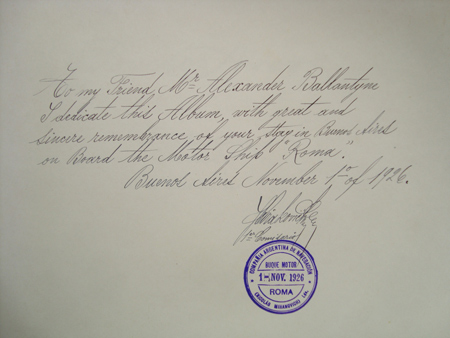 To my Friend, Mr Alexander Ballantyne
I dedicate this Album, with great and
sincere remembrance of your stay in Buenos Aires
on Board the Motor Ship "Roma".
Buenos Aires November 1st of 1926.
COMPAÑIA ARGENTINA DE NAVEGACION
BUQUE MOTOR
1-NOV. 1926
ROMA
NICOLAS MIHANOVICH LDA.